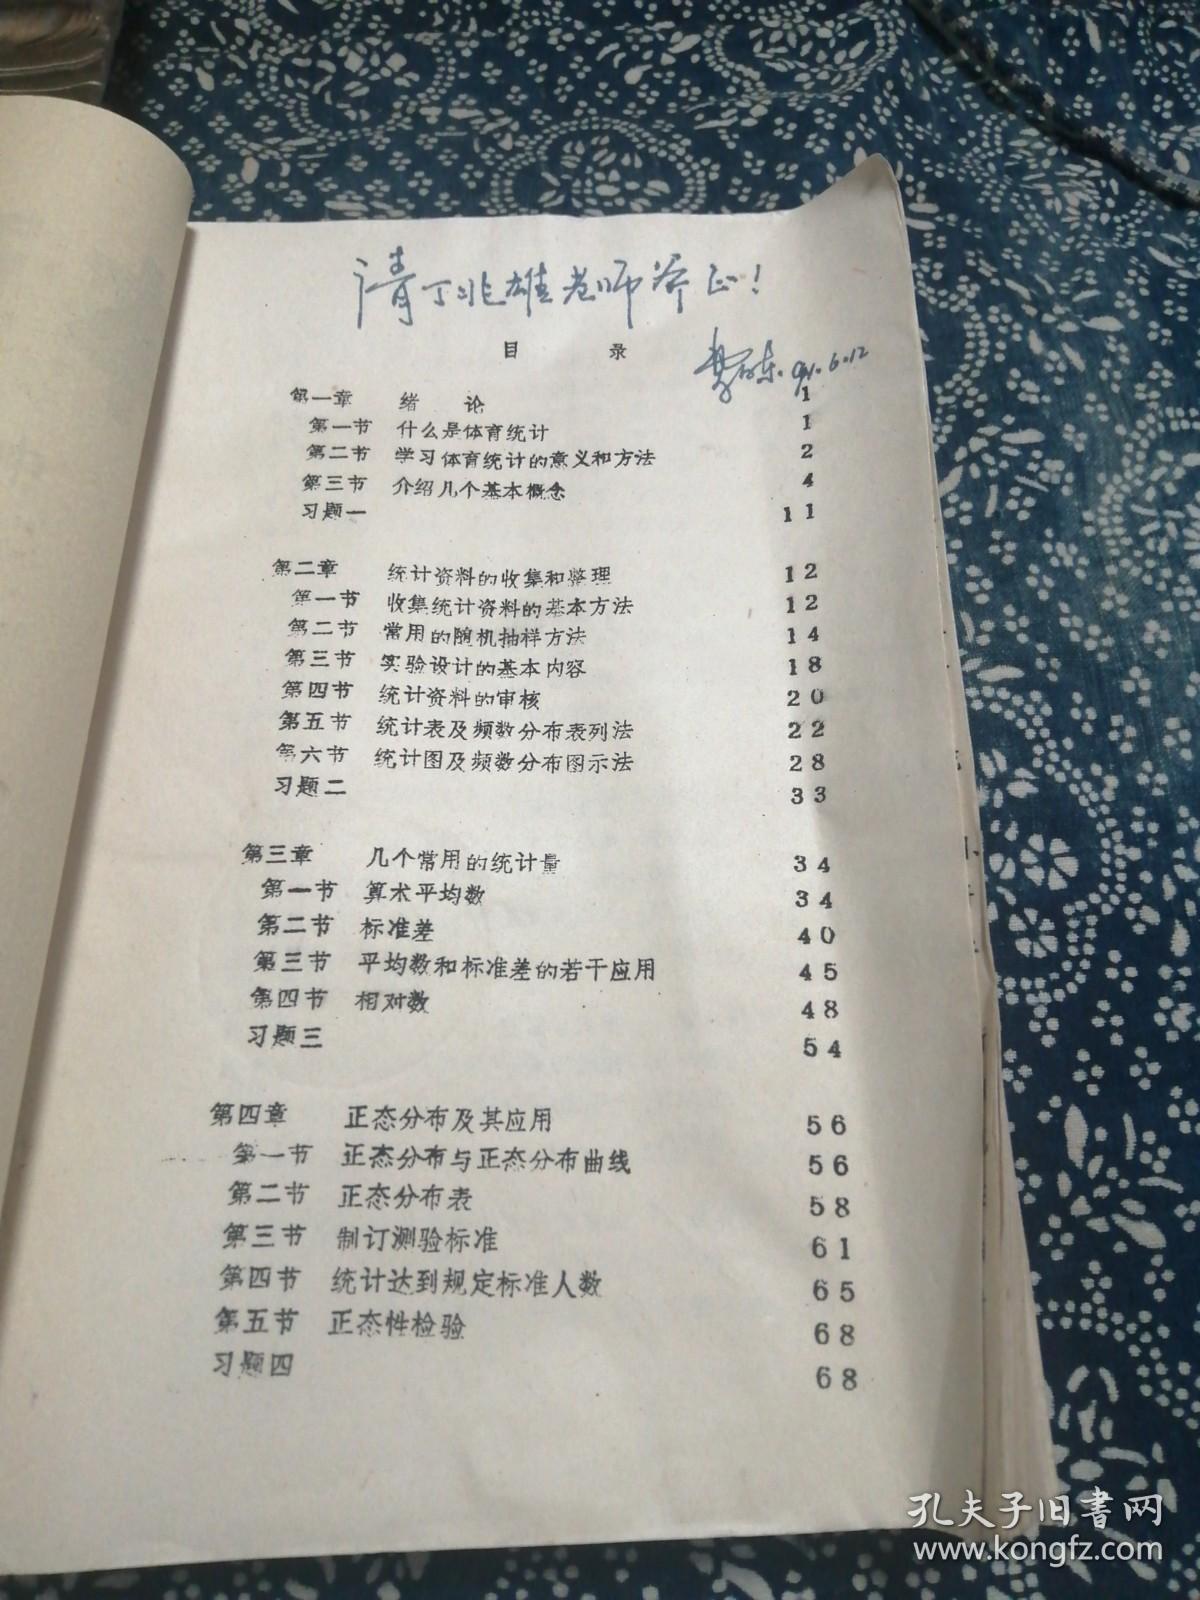 请丁兆雄老师斧正！
目 录
91.6.12
第一章 绪 论 1
第一节 什么是体育统计 1
第二节 学习体育统计的意义和方法 2
第三节 介绍几个基本概念 4
习题一 11
第二章 统计资料的收集和整理 12
第一节 收集统计资料的基本方法 12
第二节 常用的随机抽样方法 14
第三节 实验设计的基本内容 18
第四节 统计资料的审核 20
第五节 统计表及频数分布表列法 22
第六节 统计图及频数分布图示法 28
习题二 33
第三章 几个常用的统计量 34
第一节 算术平均数 34
第二节 标准差 40
第三节 平均数和标准差的若干应用 45
第四节 相对数 48
习题三 54
第四章 正态分布及其应用 56
第一节 正态分布与正态分布曲线 56
第二节 正态分布表 58
第三节 制订测验标准 61
第四节 统计达到规定标准人数 65
第五节 正态性检验 68
习题四 68
孔夫子旧書网
www.kongfz.com